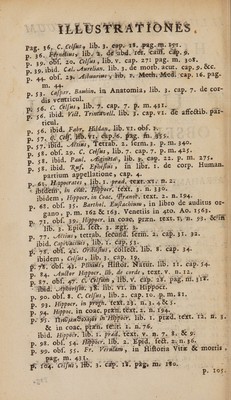 ILLUSTRATIONES.
Pag. 36. C. Celsus, lib. 3. cap. 18. pag. m. 191.
p. 36. lib. 2. de ibid. rec. cap. 9.
p. 39. obs. 20. Celsus, lib. v. cap. 27: pag. m. 308.
p. 39. ibid. Cæl. Aurelian. lib. 3. de morb. acut. cap. 9. &c.
p. 44. obs. 23. lib. 2. Meth. Med. cap. 16. pag.
m. 44.
p. 53. Casper. Bauhin. in Anatomia, lib. 3. cap. 7. de cor-
dis ventricul.
p. 56. C. Celsus, lib. 7. cap. 7. p. m. 431.
p. 56. ibid. Vict. Trincavell. lib. 3. cap. vi. de affectib. par-
ticul.
p. 56. ibid. Fabr. Hildan. lib. vi. obs. 1.
p. 57. C. Cels. lib. vi. cap. 6. pag. m. 355.
p. 57. ibid. Aetius, Tetrab. 2. serm. 3. p. m. 340.
p. 58. obs. 29. C. Celsus, lib. 7. cap. 7. p. m. 425.
p. 58. ibid. Paul. Aeginetta, lib. 3. cap. 22. p. m. 275.
p. 58. ibid. Ruff. Ephesius, in libr. 1. de corp. Human.
partium appellatione, cap. 4.
p. 61. Hippocrates, lib. 1. præd. text. xt. n. 2.
ibidem, in coac. Hippocr. text. 3. n. 330.
ibidem, Hippocr. in Coac. Prænot. text. 2. n. 194.
p. 68. obs. 35. Barthol. Eustachium, in libro de auditus or-
gano, p. m. 162 & 163. Venetiis in 4to. Ao. 1563.
p. 71. obs. 39. Hippocr. in coac. præn. text. 1. n. 31. & in
lib. 3. Epid. sect. 3. ægr. 3.
p. 77. Aetius, tetrab. secund. serm. 2. cap. 31. 32.
ibid. Capivaccius, lib. 1. cap. 53.
p. 78. obs. 42. Oribasius, collect. lib. 8. cap. 34.
ibidem, Celsus, lib. 3. cap. 19.
p. 78. obs. 43. Plinius, Histor. Natur. lib. 21. cap. 54.
p. 84. Author Hippocr. lib. de corde, text. v. n. 12.
p. 87. obs. 47. C. Celsus, lib. v. cap. 28. pag. m. 312.
ibid. Aphorism. 38. lib. vi. in Hippocr.
p. 90. obs. 8. C. Celsus, lib. 2. cap. 10. p. m. 81.
p. 93. Hippocr. in progn. text. 23. n. 3. 4 & 5.
p. 94. Hippoc. in coac. præn. text. 2. n. 194.
p. 95. in Hippocr. lib. 1. præd. text. 12. n. 3.
& in coac. præn. text. 1. n. 76.
ibid. Hippocr. lib. 1. præd. text. v. n. 7. 8. & 9.
p. 98. obs. 54. Hippocr. lib. 2. Epid. sect. 2. n. 36.
p. 99. obs. 55. Fr. Verulam, in Historia Vitæ & mortis,
pag. m. 431.
p. 104. Celsus, lib. 3. cap. 18. pag. m. 180.
p. 105.